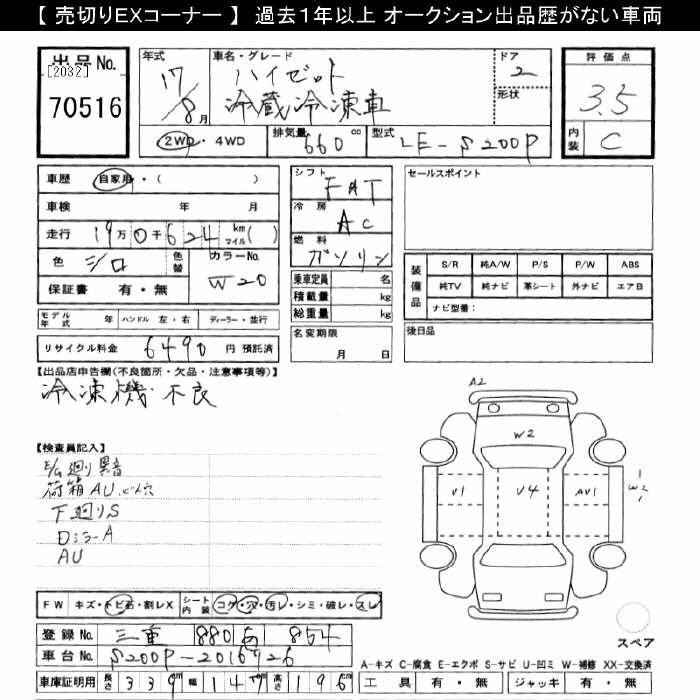 【 売切りEXコーナー 】 過去1年以上 オークション出品歴がない車両
出品No.
[2032]
70516
年式
17/8月
車名・グレード
ハイゼット
冷蔵冷凍車
ドア
2
形状
評価点
3.5
内装
C
2WD・4WD
排気量
660 cc
型式
LE-S200P
車歴 自家用・( )
車検 年 月
走行 19万0千624 km マイル( )
色 シロ 色替
カラーNo.
W20
保証書 有・無
シフト
FAT
冷房
AC
燃料
ガソリン
乗車定員 名
積載量 kg
総重量 kg
名変期限
月 日
セールスポイント
装備品
S/R 純A/W P/S P/W ABS
純TV 純ナビ 革シート 外ナビ エアB
ナビ型番:
後日品
モデル年式 年 ハンドル 左・右 ディーラー・並行
リサイクル料金 6490 円 預託済
【出品店申告欄(不良箇所・欠品・注意事項等)】
冷凍機 不良
【検査員記入】
E/G廻り異音
荷箱AU.ビス穴
下廻りS
DミラーA
AU
A2
W2
V1
V4
AV1
W2
FW キズ・トビ石・割レX
シート内装 コゲ・穴・汚レ・シミ・破レ・スレ
登録No. 三重 880 あ 854
車台No. S200P-2016926
車庫証明用 長さ 339 幅 147 高さ 196 cm
スペア
A-キズ C-腐食 E-エクボ S-サビ U-凹ミ W-補修 XX-交換済
工具 有・無 ジャッキ 有・無